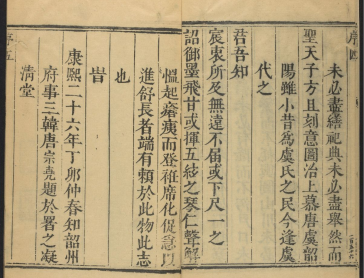 序四
未必盡繕祀典未必盡舉然而
聖天子方且刻意圖治上慕唐虞韶
陽雖小昔為虞氏之民今逢虞
代之
君吾知
宸衷所及無遠不屆或下尺一之
詔御墨飛甘或揮五絃之琴仁聲解
慍起瘡痍而登袵席化促意以
進舒長者端有賴於此物此志
也
旹
康熙二十六年丁卯仲春知韶州
府事三韓唐宗堯題於署之凝
清堂
序五